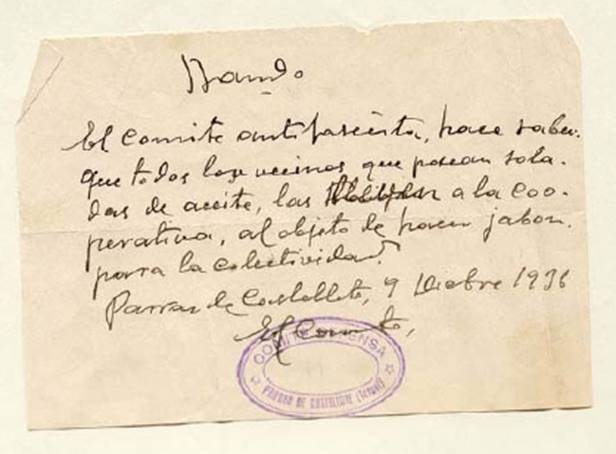 Bando
El comite antifascista, hace saber.
que todos los vecinos que posean sola-
das de aceite, las lleven a la coo-
perativa, al objeto de hacer jabon.
para la colectividad.
Parras de Castellote, 9 Dicbre 1936
El Comite,
COMITE DEFENSA
PARRAS DE CASTELLOTE (Teruel)